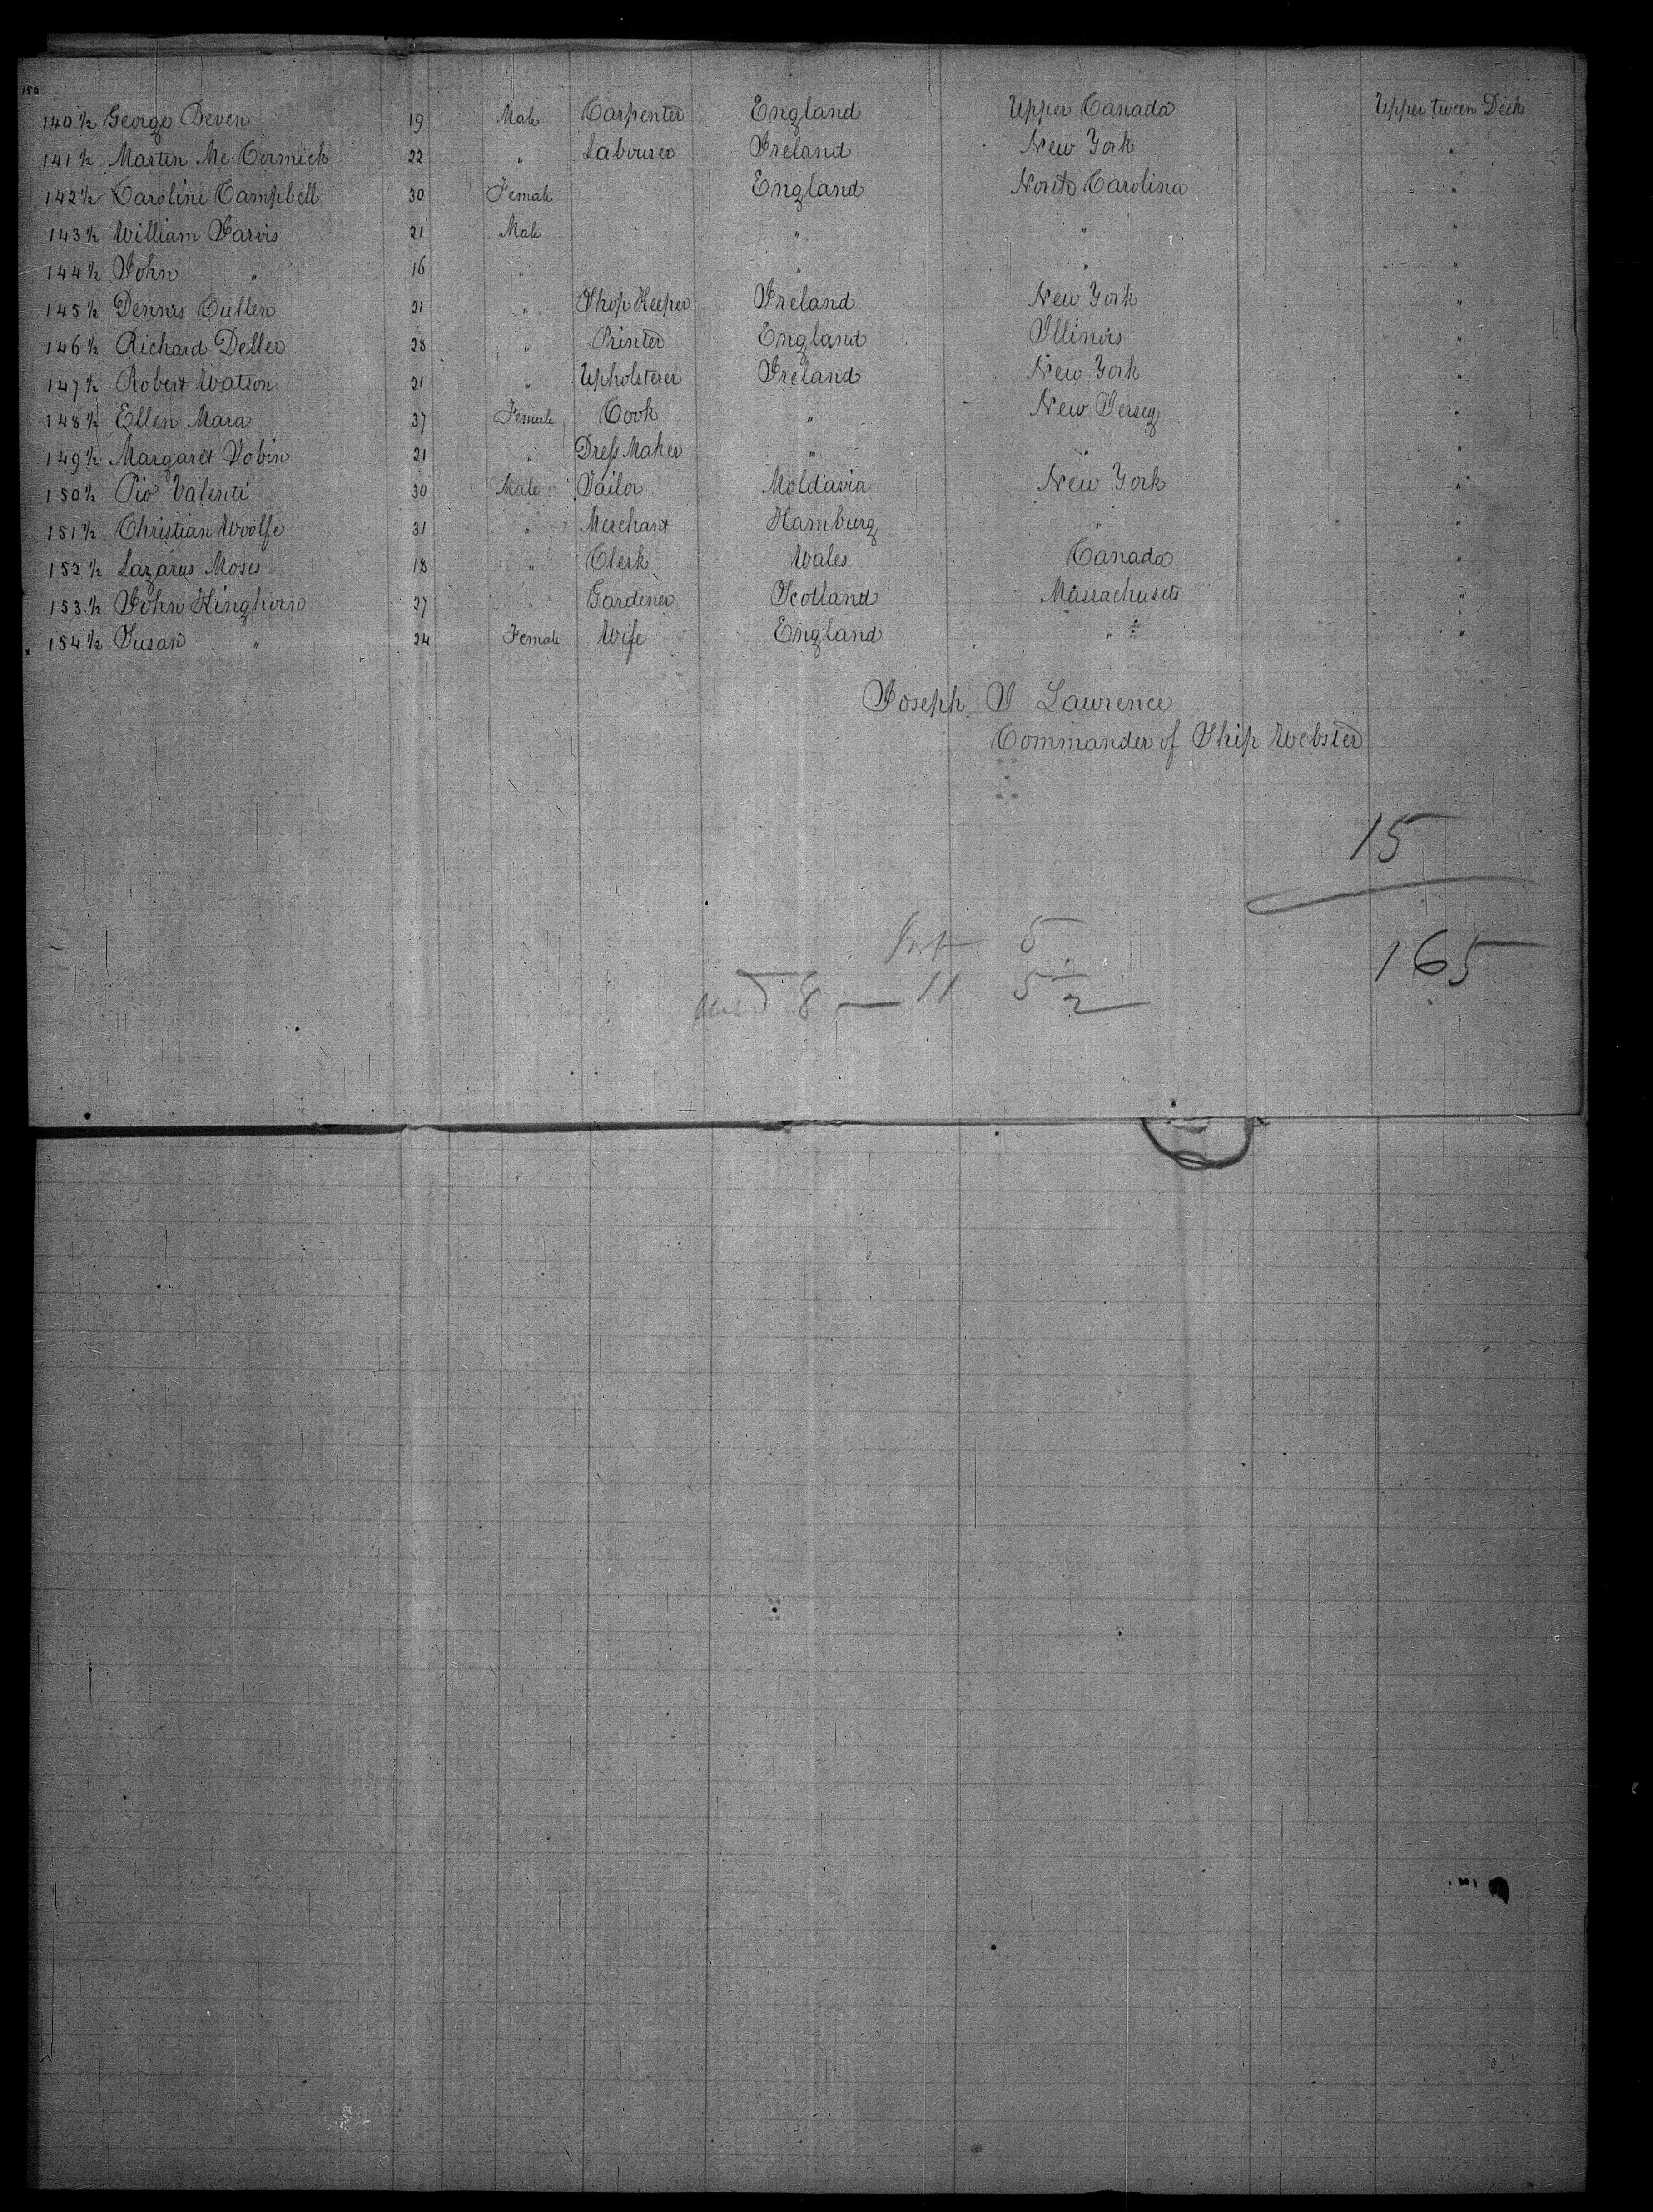 150
140 ½ George Beven 19 Male Carpenter England Upper Canada Upper tween Deck
141 ½ Martin Mc. Cormick 22 " Labourer Ireland New York "
142 ½ Caroline Campbell 30 Female England North Carolina "
143 ½ William Jarvis 21 Male " " "
144 ½ John " 16 " " " "
145 ½ Dennis Cullen 21 " Shop Keeper Ireland New York "
146 ½ Richard Deller 28 " Printer England Illinois "
147 ½ Robert Watson 21 " Upholsterer Ireland New York "
148 ½ Ellen Mara 37 Female Cook " New Jersey "
149 ½ Margaret Tobin 21 " Dress Maker " " "
150 ½ Pio Valenti 30 Male Tailor Moldavia New York "
151 ½ Christian Woolfe 31 " Merchant Hamburg " "
152 ½ Lazarus Moses 18 " Clerk Wales Canada "
153 ½ John Kinghorn 27 " Gardener Scotland Massachusets "
154 ½ Susan " 24 Female Wife England " "
Joseph J Lawrence
Commander of Ship Webster
15
5
8 — 11 5
2
165